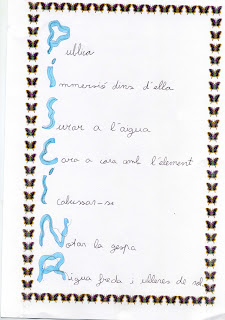 Publica
Immersió dins d'ella
Surar a l'aigua
Cara a cara amb l'element
I cabussar-se
Notar la gespa
Aigua freda i ulleres de sol